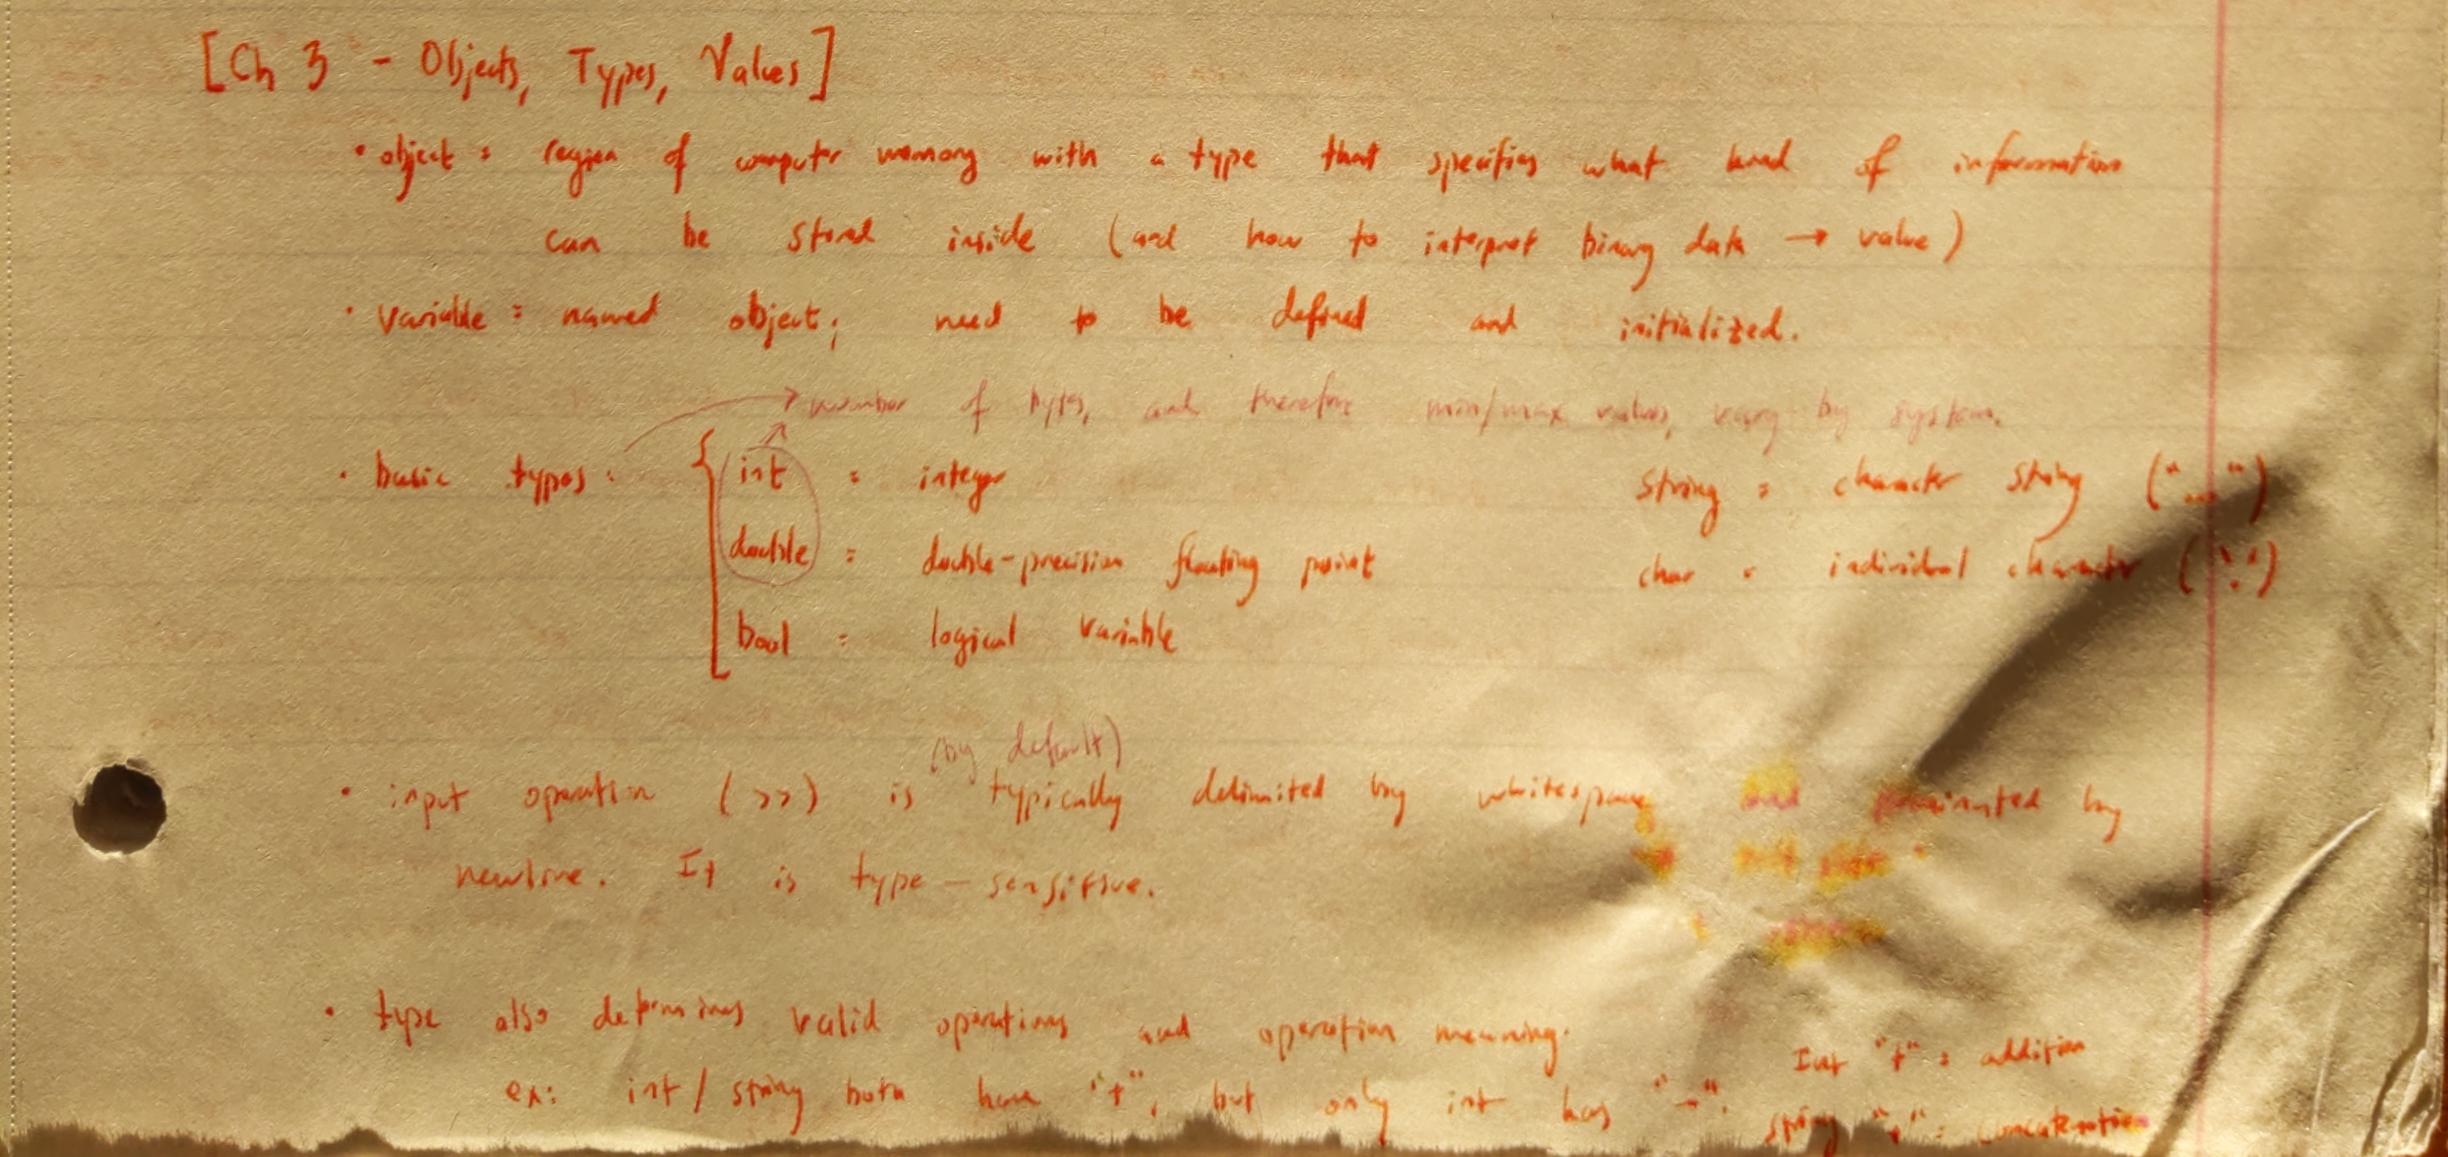 [Ch 3 - Objects, Types, Values]
• object : region of computer memory with a type that specifies what kind of information
can be stored inside (and how to interpret binary data → value)
• variable : named object; need to be defined and initialized.
number of bytes, and therefore min/max values, vary by system.
• basic types : { int : integer string : character string ("...")
double : double-precision floating point char : individual character ('.')
bool : logical variable
(by default)
• input operation (>>) is typically delimited by whitespace and terminated by
newline. It is type-sensitive.
• type also determines valid operations and operation meaning. Int "+" : addition
ex: int/string both have "+", but only int has "-". string "+" : concatenation